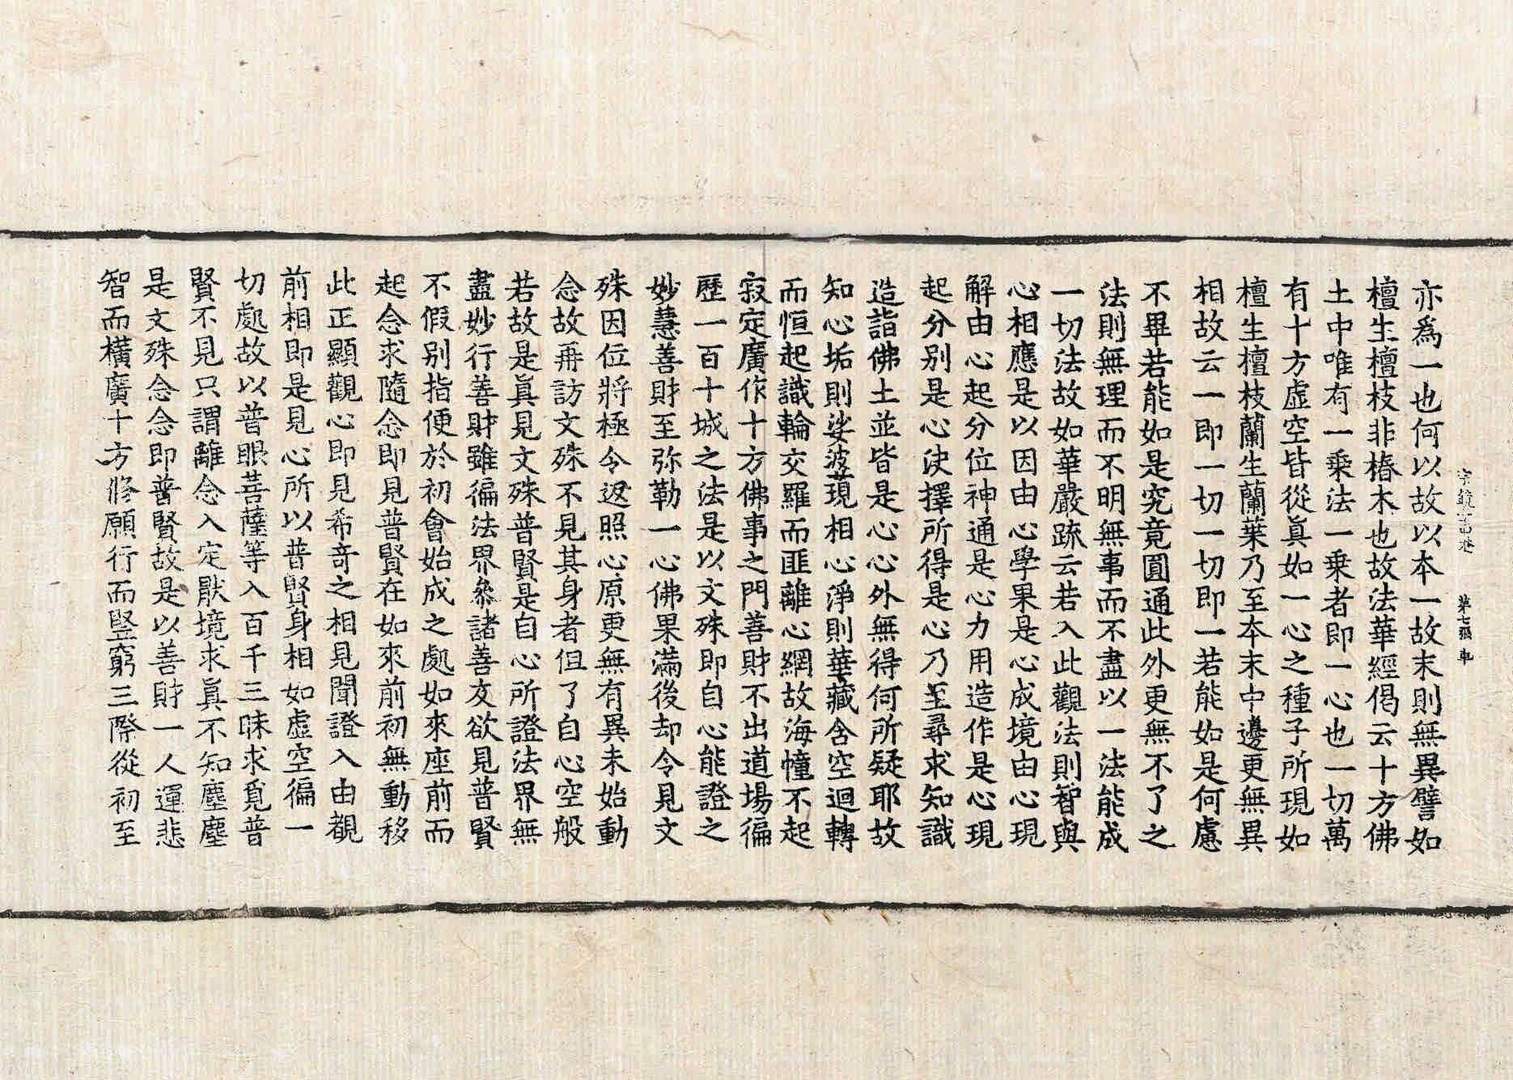 亦爲一也何以故以本一故末則無異譬如
檀生檀枝非椿木也故法華經偈云十方佛
土中唯有一乘法一乘者即一心也一切萬
有十方虛空皆從眞如一心之種子所現如
檀生檀枝蘭生蘭葉乃至本末中邊更無異
相故云一即一切一切即一若能如是何慮
不畢若能如是究竟圓通此外更無不了之
法則無理而不明無事而不盡以一法能成
一切法故如華嚴疏云若入此觀法則智與
心相應是以因由心學果是心成境由心現
解由心起分位神通是心力用造作是心現
起分別是心決擇所得是心乃至尋求知識
造詣佛土並皆是心心外無得何所疑耶故
知心垢則娑婆現相心淨則華藏含空迴轉
而恒起識輪交羅而匪離心網故海幢不起
寂定廣作十方佛事之門善財不出道場徧
歷一百十城之法是以文殊即自心能證之
妙慧善財至弥勒一心佛果滿後却令見文
殊因位將極令返照心原更無有異未始動
念故再訪文殊不見其身者但了自心空般
若故是眞見文殊普賢是自心所證法界無
盡妙行善財雖徧法界叅諸善友欲見普賢
不假别指便於初會始成之處如來座前而
起念求隨念即見普賢在如來前初無動移
此正顯觀心即見希奇之相見聞證入由觀
前相即是見心所以普賢身相如虛空徧一
切處故以普眼菩薩等入百千三昧求覓普
賢不見只謂離念入定猒境求眞不知塵塵
是文殊念念即普賢故是以善財一人運悲
智而橫廣十方修願行而竪窮三際從初至
第七張 車